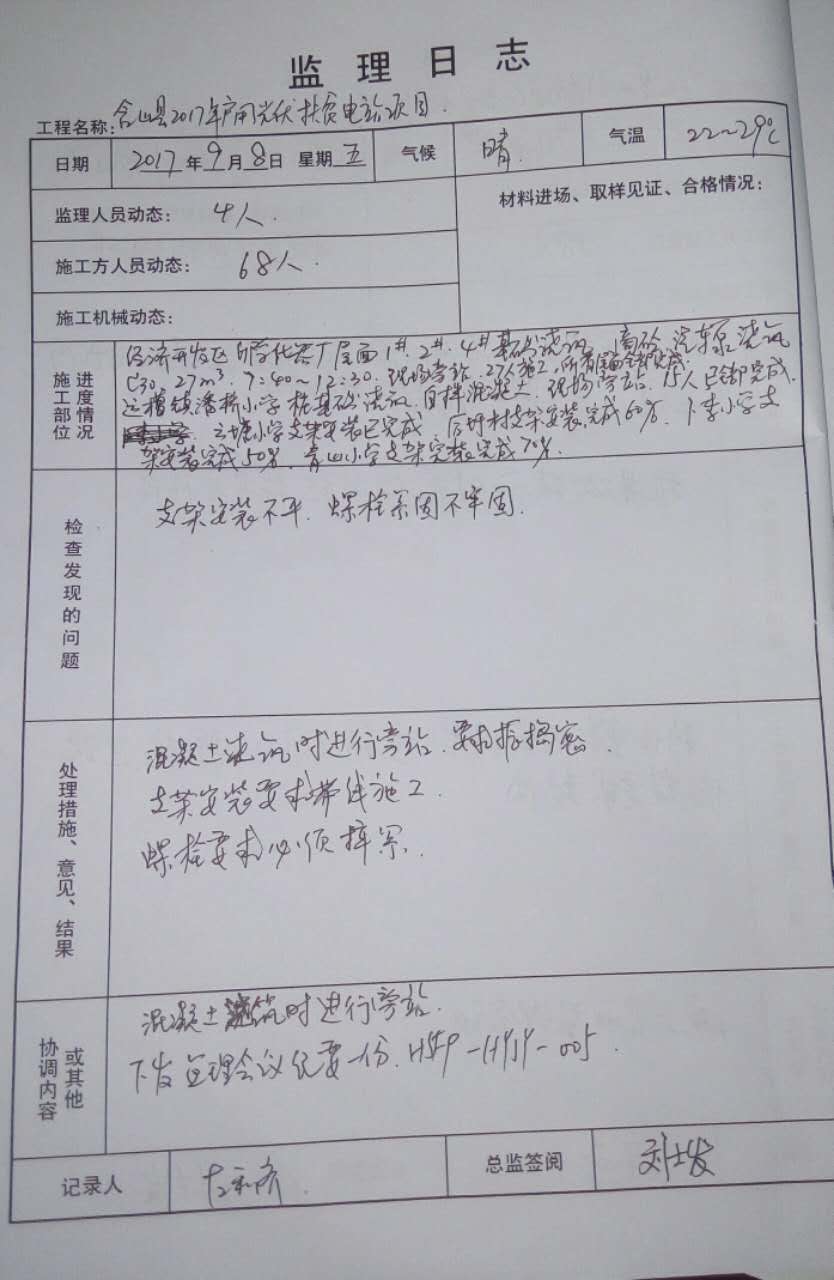 监理日志
工程名称: 含山县2017年户用光伏扶贫电站项目.
日期 2017年9月8日 星期五 气候 晴. 气温 22~29℃
监理人员动态: 4人. 材料进场、取样见证、合格情况:
施工方人员动态: 68人.
施工机械动态:
施工部位 进度情况
经济开发区 化 厂屋面1#. 2#. 4#基础浇筑. 商砼. 汽车泵浇筑
C30. 27m³. 7:40~12:30. 现场旁站. 27人施工, 所有屋面全部完成.
运漕镇潘桥小学桩基础浇筑. 自拌混凝土. 现场旁站. 15人 已全部完成.
云塘小学支架安装已完成. 村支架安装完成60%. 卜李小学支
架安装完成50%. 青山小学支架安装完成70%.
检查发现的问题
支架安装不平. 螺栓紧固不牢固.
处理措施、意见、结果
混凝土浇筑时进行旁站. 要求振捣密.
支架安装要求带线施工.
螺栓要求必须拧紧.
协调内容 或其他
混凝土浇筑时进行旁站.
下发监理会议纪要一份. -005.
记录人 总监签阅